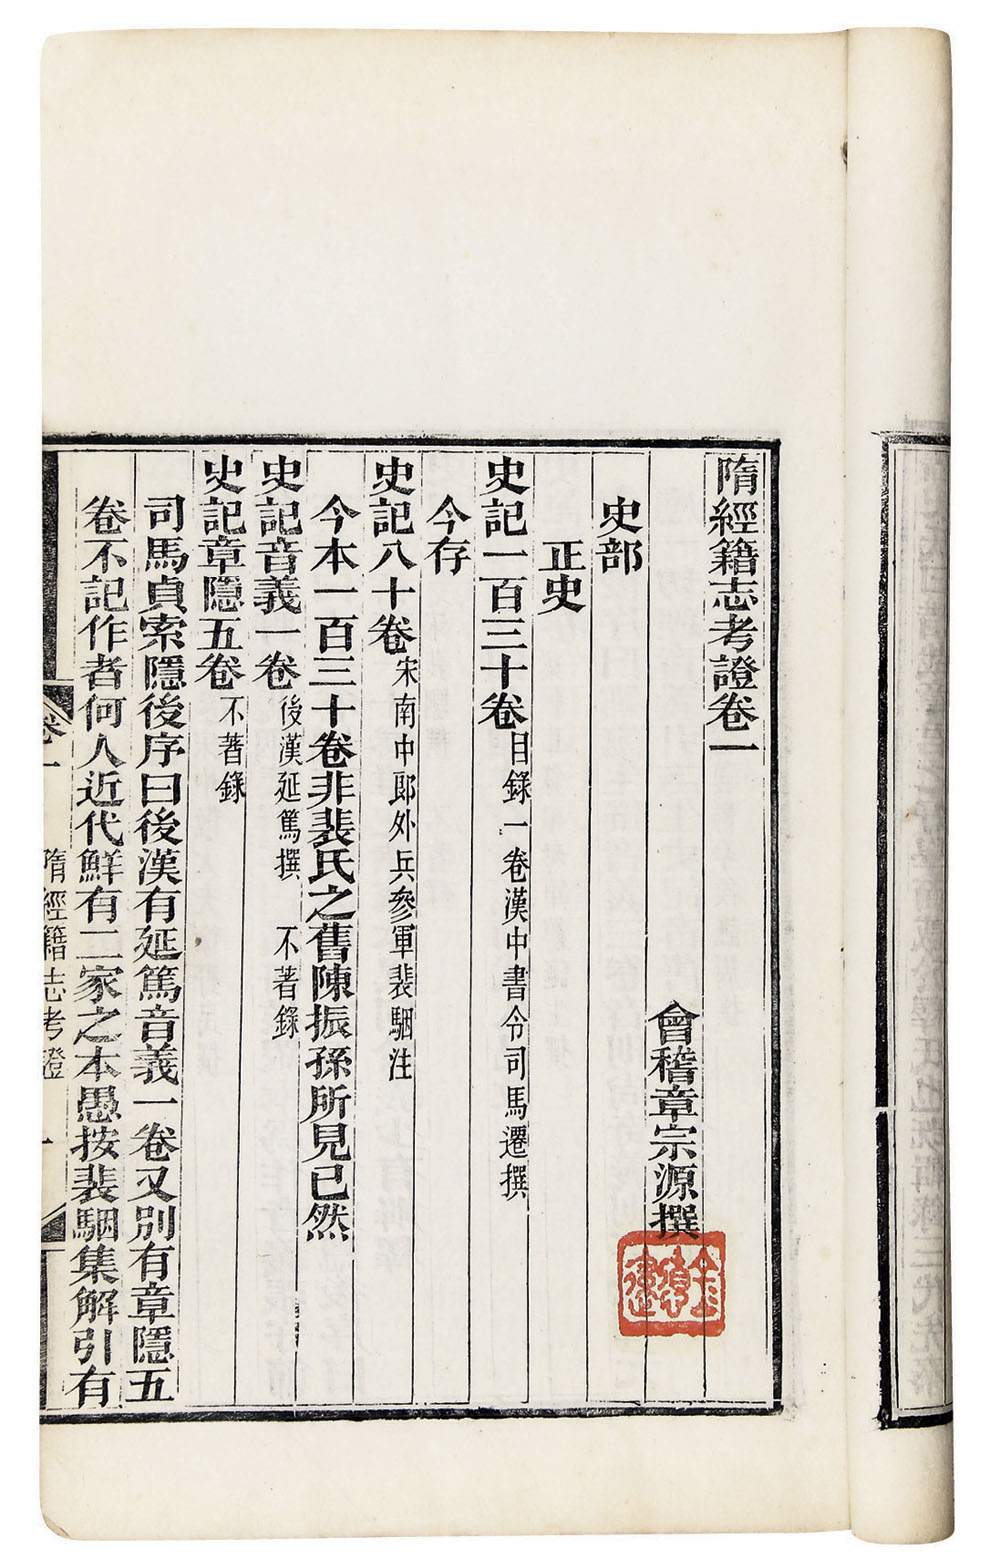 隋經籍志考證卷一
會稽章宗源撰
史部
正史
史記一百三十卷目錄一卷漢中書令司馬遷撰
今存
史記八十卷宋南中郎外兵參軍裴駰注
今本一百三十卷非裴氏之舊陳振孫所見已然
史記音義一卷後漢延篤撰 不著錄
史記章隱五卷不著錄
司馬貞索隱後序曰後漢有延篤音義一卷又別有章隱五
卷不記作者何人近代鮮有二家之本愚按裴駰集解引有
卷一 隋經籍志考證 一